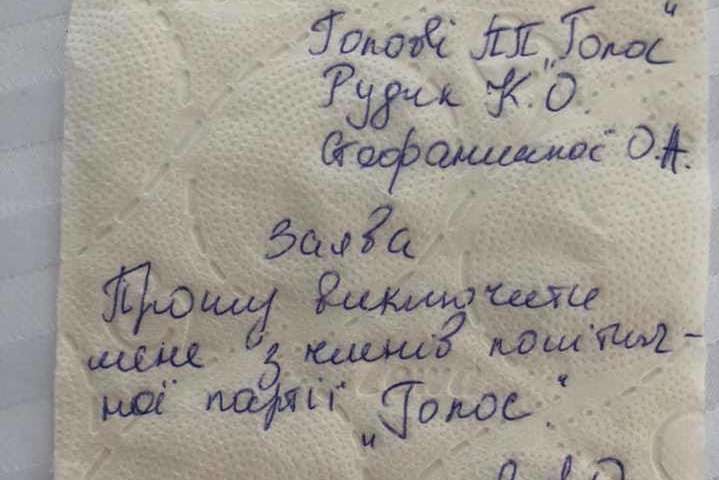 Голові ПП „Голос"
Рудик К.О.
Стефанишиної О.А.
Заява
Прошу виключити
мене з членів політич-
ної партії
„Голос."